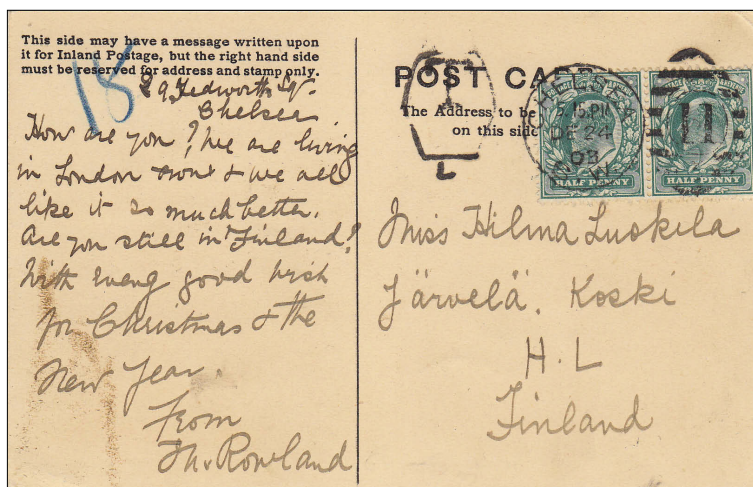 This side may have a message written upon
it for Inland Postage, but the right hand side
must be reserved for address and stamp only.
18
29 Tedworth Sqr.
Chelsea
How are you? We are living
in London now & we all
like it so much better.
Are you still in Finland?
With every good wish
for Christmas & the
New Year.
From
M. Rowland
POST CARD
The Address to be
on this side
T
L
CHELSEA
9.15.PM
DE 24
03
S.W.
11
HALF PENNY
HALF PENNY
Miss Hilma Luskila
Järvelä. Koski
H.L
Finland